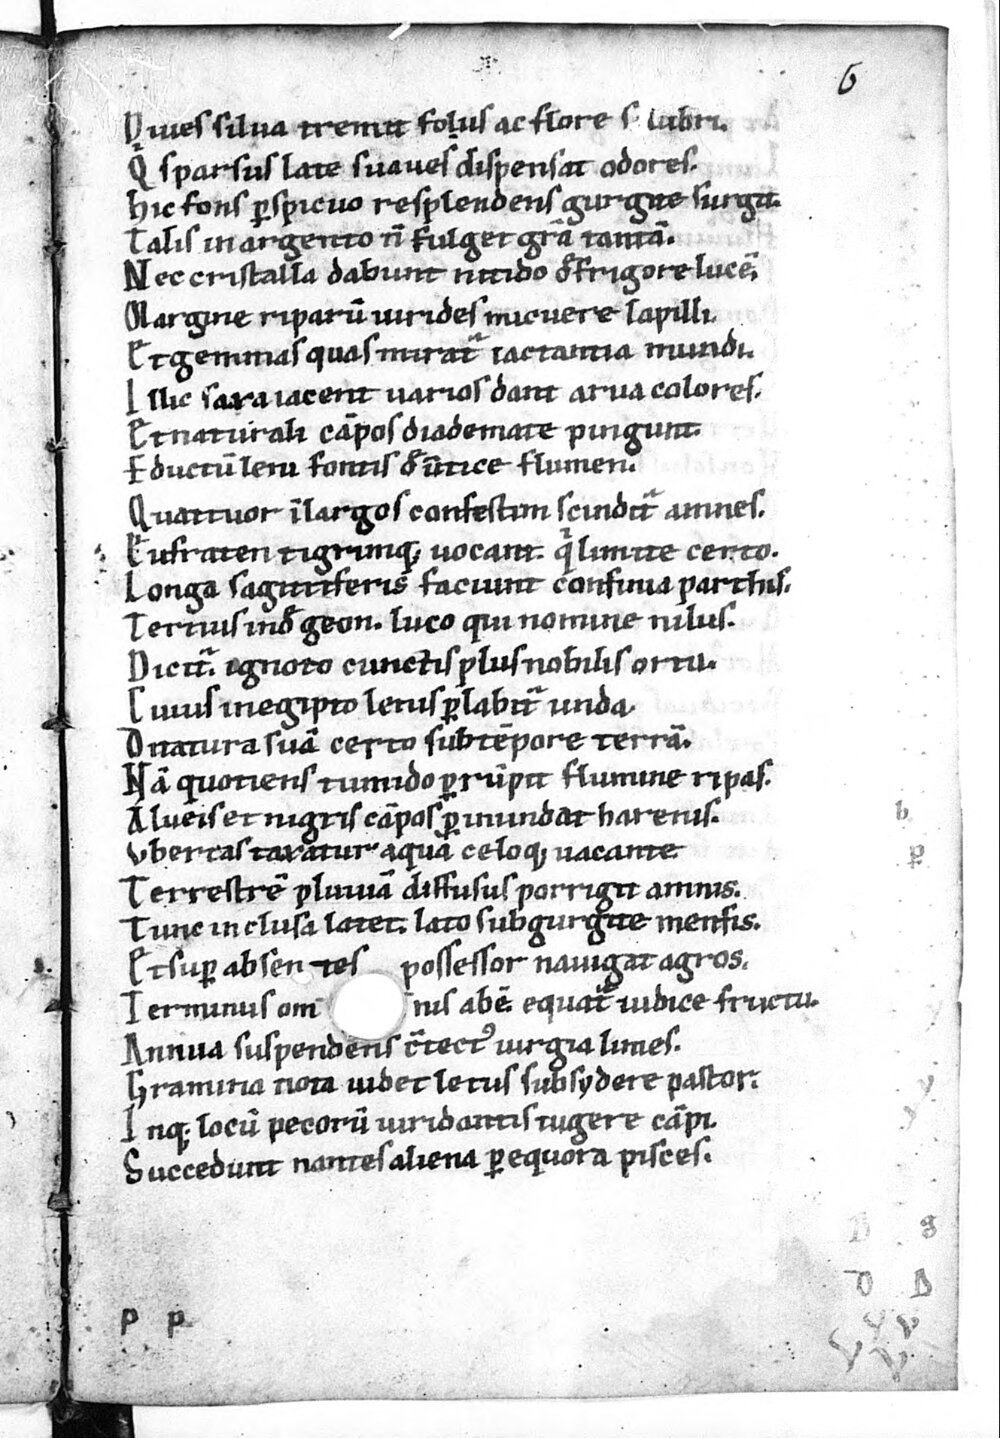 6
Diues silua tremit folııs ac flore s lubri.
Qͥ sparsus late suaues dispensat odores.
hic fons ꝑspicuo resplendens gurgite surgit.
Talis in argento n̄ fulget gr̄a tantā.
Nec cristalla dabunt nitido d̄ frigore lucē.
Margine riparū uirides micuere lapilli.
Et gemmas quas mirat᷑ iactantia mundi.
Illic saxa iacent uarios dant arua colores.
Et naturali cāpos diademate pingunt.
Eductū leni fontis d̄ ūtice flumen.
Quattuor ī largos confestim scindit᷑ amnes.
Eufraten tigrinq; uocant. qͥ limite certo.
Longa sagittiferis faciunt confinia parthis.
Tertius ind̄ geon. luco qui nomine nilus.
Dicit᷑. ignoto cunctis plus nobilis ortu.
Cuius in egipto lenis ꝑlabit᷑ unda.
Ditatura suā certo sub tēpore terrā.
Nā quotiens tumido ꝑrūpit flumine ripas.
Alueis et nigris cāpos ꝑ inundat harenis.
Vbertas taxatur aquā celoq; uacante
Terrestrē pluuiā diffusus porrigit amnis.
Tunc inclusa latet. lato sub gurgite menfis.
Et suꝑ absentes possessor nauigat agros.
Terminus omnis abē. equat᷑ iudice fructu.
Annua suspendens c̄tectꝰ iurgia limes.
Gramina nota uidet letus subsydere pastor.
Inq; locū pecorū uiridantis iugere cāpi.
Succedunt nantes aliena ꝑ equora pisces.
b
p
D g
D D
p p